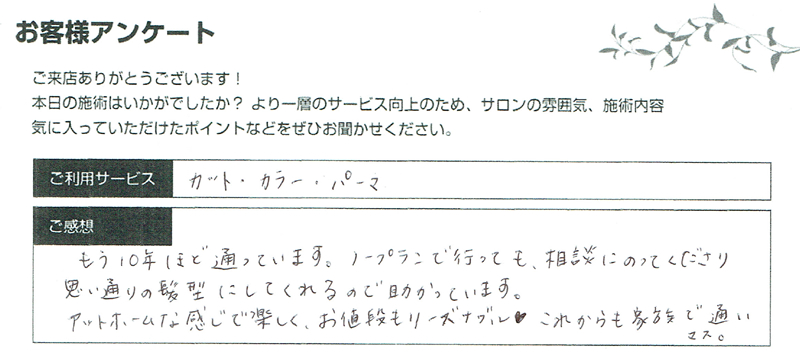 お客様アンケート
ご来店ありがとうございます！
本日の施術はいかがでしたか？ より一層のサービス向上のため、サロンの雰囲気、施術内容
気に入っていただけたポイントなどをぜひお聞かせください。
ご利用サービス カット・カラー・パーマ
ご感想
もう10年ほど通っています。ノープランで行っても、相談にのってくださり
思い通りの髪型にしてくれるので助かっています。
アットホームな感じで楽しく、お値段もリーズナブル♥ これからも家族で通い
マス。